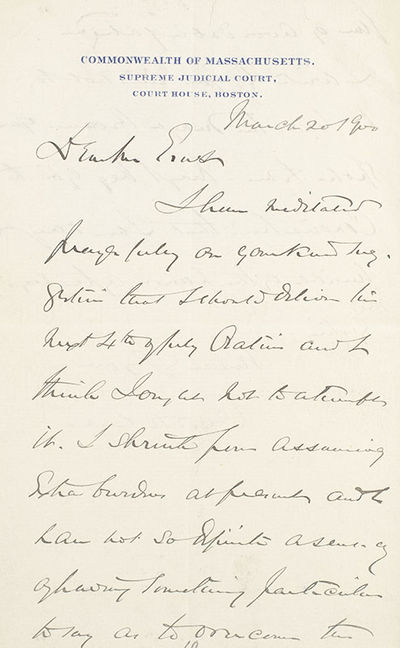 COMMONWEALTH OF MASSACHUSETTS.
SUPREME JUDICIAL COURT,
COURT HOUSE, BOSTON.
March 20 1900
Dear Mr
I have meditated
prayerfully on your kind sug-
gestion that I should deliver the
next 4th of July Oration and I
think I ought not to attempt
it. I shrink from assuming
extra burdens at present and I
have not so definite a sense of
having something particular
to say as to overcome the